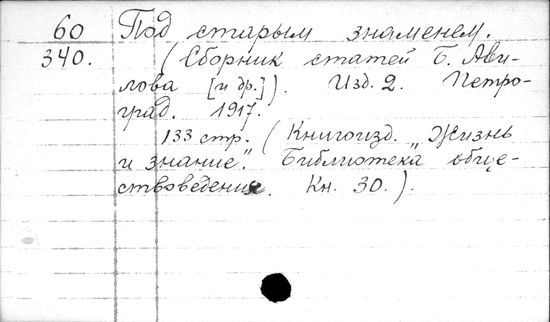 60 Под старым знаменем.
340. (Сборник статей Б. Ави-
лова [и др.]). Изд. 2. Петро-
град. 1917.
133 стр. (Книгоизд. „Жизнь
и знание". Библиотека обще-
ствоведения. Кн. 30.).